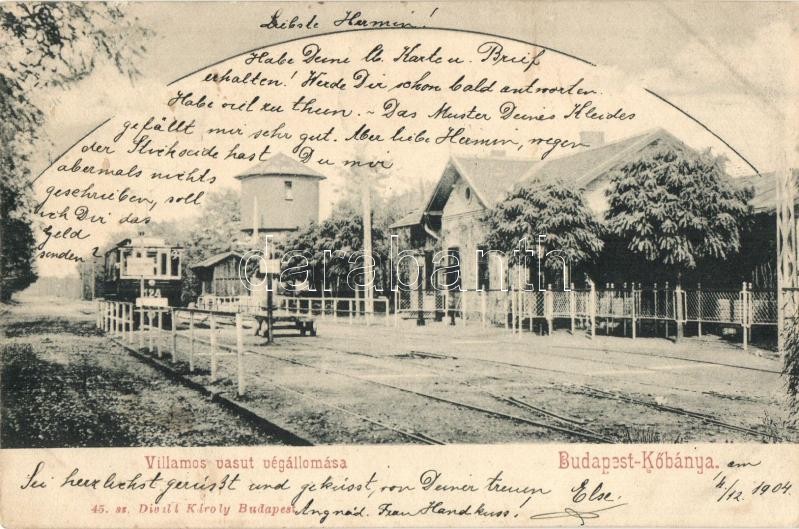 Liebste Hermin!
Habe Deine lb. Karte u. Brief
erhalten! Werde Dir schon bald antworten.
Habe viel zu thun. - Das Muster Deines Kleides
gefällt mir sehr gut. Aber liebe Hermin, wegen
der Stickseide hast Du mir
abermals nichts
geschrieben, soll
ich Dir das
Geld
senden?
darabanth.com
Villamos vasut végállomása
Budapest-Kőbánya. am
4/12 1904.
Sei herzlichst gerüsst und geküsst, von Deiner treuen Else.
45. sz. Divald Károly Budapest
Frau Handkuss!